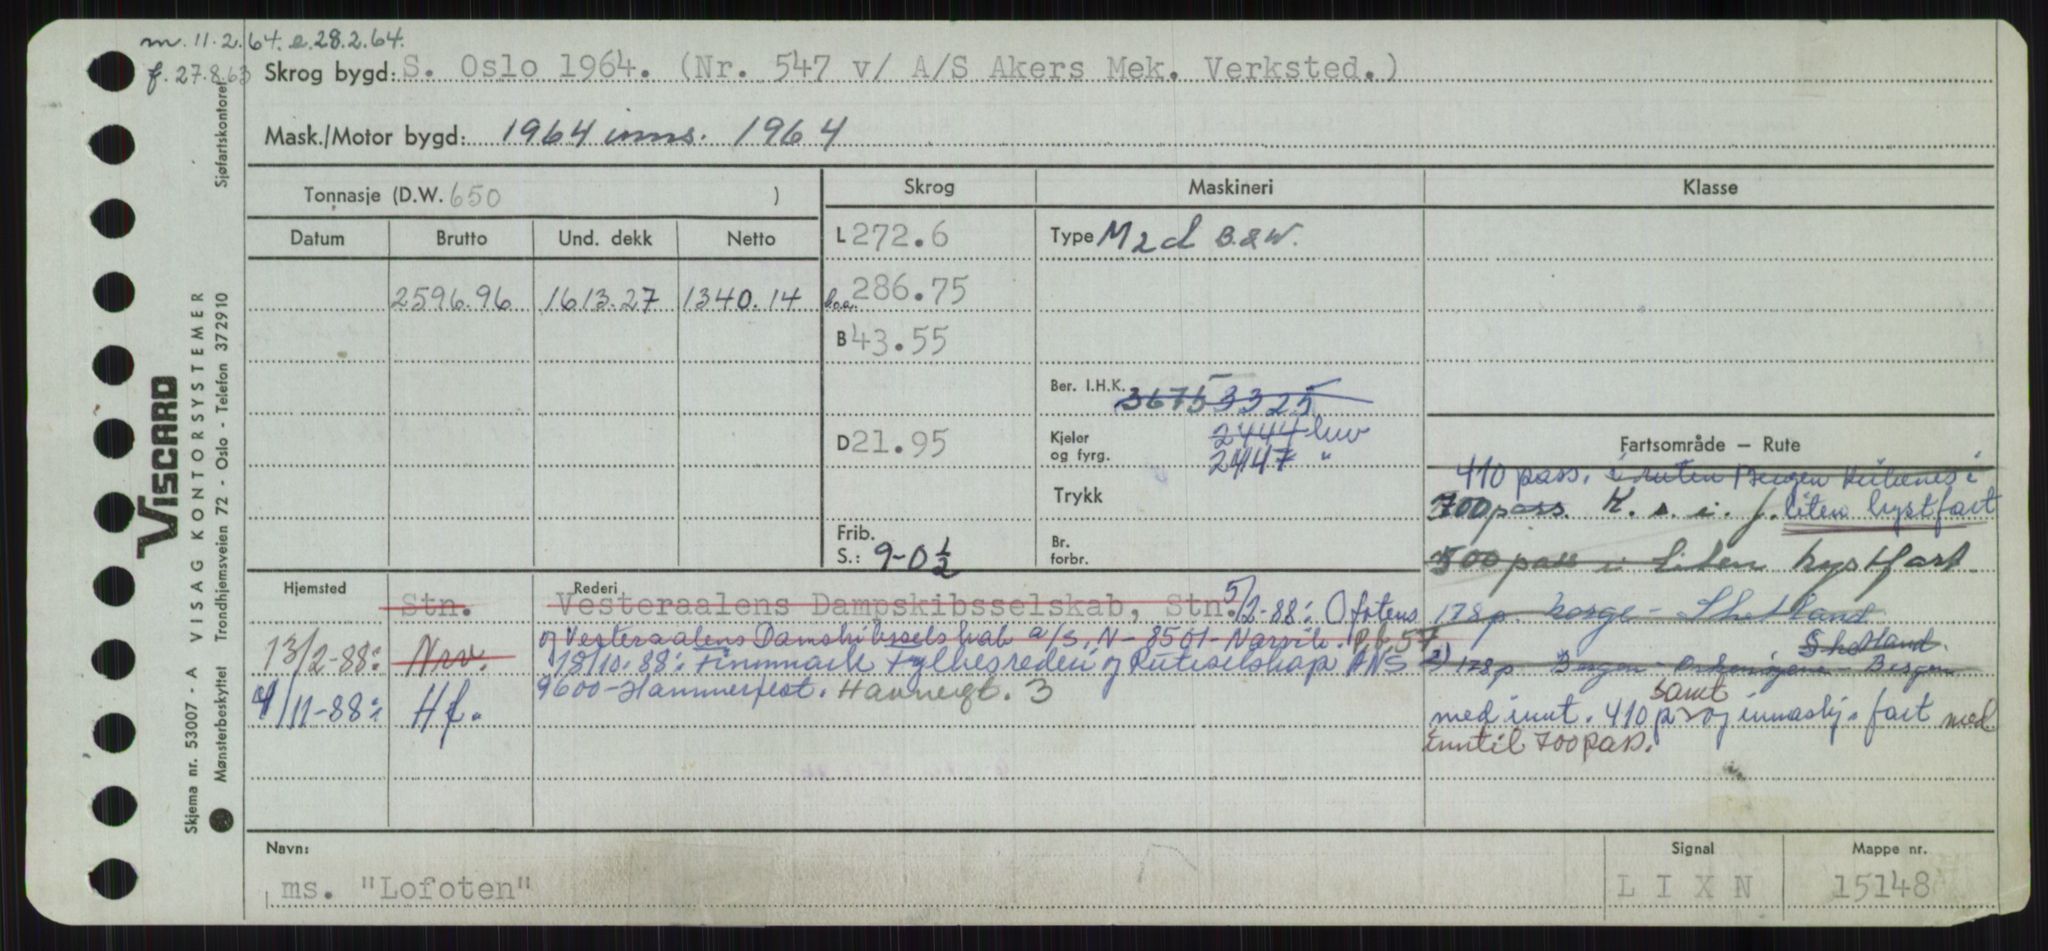 m. 11.2.64. e. 28.2.64.
f. 27.8.63
Skrog bygd: S. Oslo 1964. (Nr. 547 v/ A/S Akers Mek. Verksted.)
Mask./Motor bygd: 1964 inns. 1964
Tonnasje (D.W. 650 )
Skrog
Maskineri
Klasse
Datum Brutto Und. dekk Netto
L 272.6
Type M 2 d B.&W.
2596.96 1613.27 1340.14
l.o.a. 286.75
B 43.55
Ber. I.H.K. 3675 3325
D 21.95
Kjeler og fyrg. 2444 luv
2447 "
Trykk
Frib. S.: 9-0½
Br. forbr.
Fartsområde – Rute
410 pass. i ruten Bergen Kirkenes i
700 pass. K. s. i. f. liten kystfart
500 pass i liten kystfart
178 p. Norge - Shetland
Shetland
178 p. Bergen - Orkenöyene - Bergen
samt
med innt. 410 p og innaskj. fart med
inntil 700 pass.
Hjemsted
Rederi
Stn. Vesteraalens Dampskibsselskab, Stn. 5/2-88: Ofotens
og Vesteraalens Dampskibsselskab a/s, N-8501-Narvik. P.b. 57
13/2-88: Nrv. 18/10.88: Finnmark Fylkesrederi og Ruteselskap ANS
9600-Hammerfest. Havnegt. 3
4/11-88: Hf.
Navn:
ms. "Lofoten"
Signal
L I X N
Mappe nr.
15148
VISCARD
Skjema nr. 53007 - A VISAG KONTORSYSTEMER
Mønsterbeskyttet Trondhjemsveien 72 - Oslo - Telefon 372910
Sjøfartskontoret